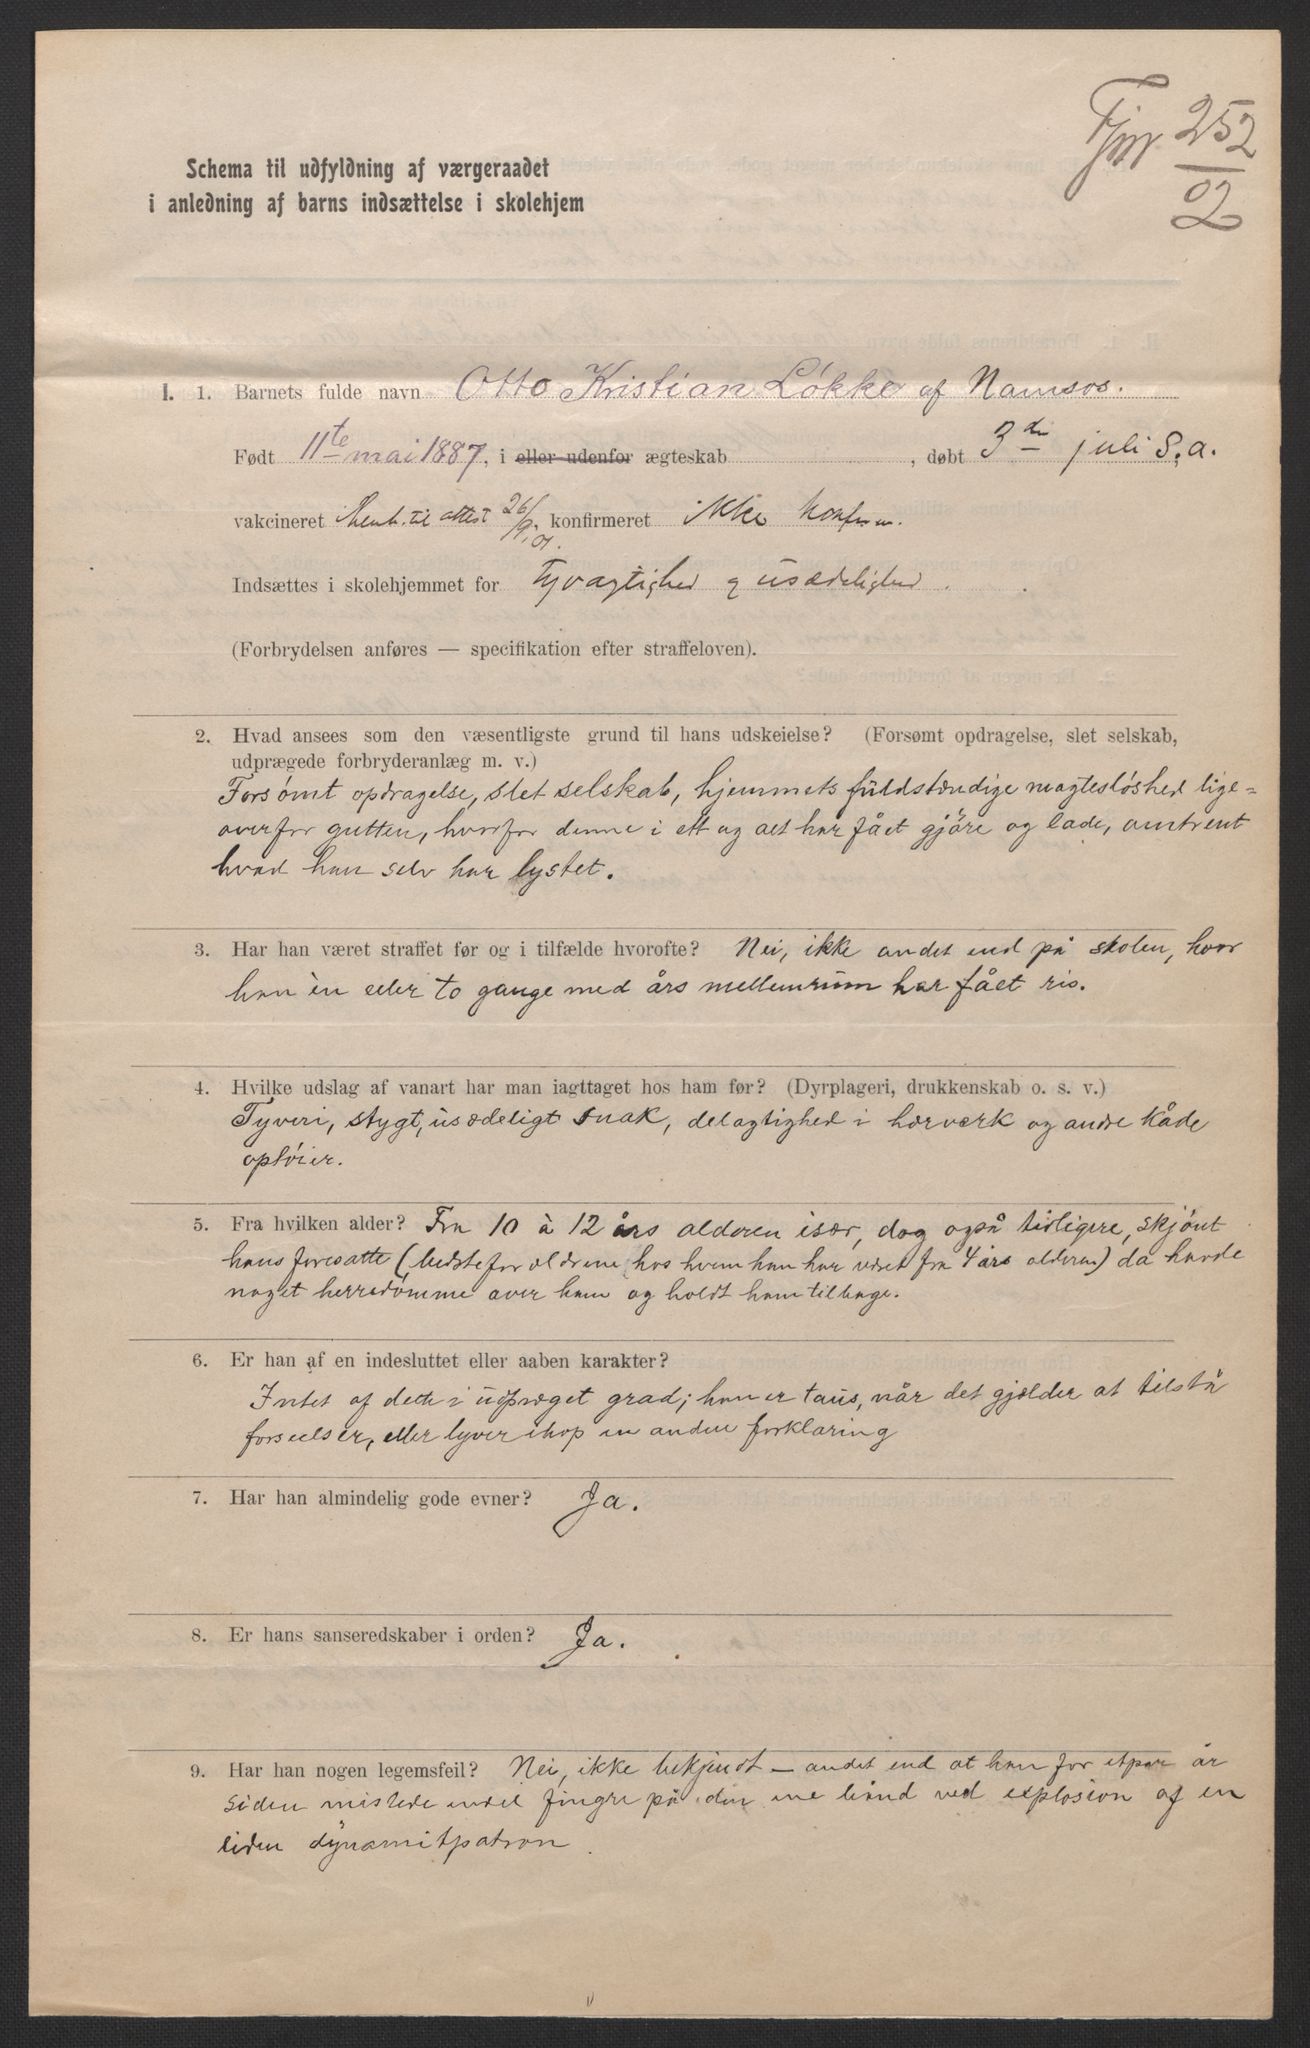 Fjnr 252/02
Schema til udfyldning af værgeraadet
i anledning af barns indsættelse i skolehjem
I. 1. Barnets fulde navn Otto Kristian Løkke af Namsos.
Født 11te mai 1887, i eller udenfor ægteskab , døbt 3die juli S.a.
vakcineret Henh. til attest 26/9.01. konfirmeret ikke konfirm.
Indsættes i skolehjemmet for Tyvagtighed og usædelighed.
(Forbrydelsen anføres — specifikation efter straffeloven).
2. Hvad ansees som den væsentligste grund til hans udskeielse? (Forsømt opdragelse, slet selskab,
udprægede forbryderanlæg m. v.)
Forsømt opdragelse, slet selskab, hjemmets fuldstændige magtesløshed lige=
overfor gutten, hvorfor denne i ett og alt har fået gjøre og lade, omtrent
hvad han selv har lystet.
3. Har han været straffet før og i tilfælde hvorofte? Nei, ikke andet end på skolen, hvor
han èn eller to gange med års mellemrum har fået ris.
4. Hvilke udslag af vanart har man iagttaget hos ham før? (Dyrplageri, drukkenskab o. s. v.)
Tyveri, stygt, usædeligt snak, delagtighed i hærværk og andre kåde
optøier.
5. Fra hvilken alder? Fra 10 à 12 års alderen især, dog også tidligere, skjønt
hans foresatte (bedsteforældrene hos hvem han har været fra 4 års alderen) da havde
noget herredømme over ham og holdt ham tilbage.
6. Er han af en indesluttet eller aaben karakter?
Intet af dette i udpræget grad; han er taus, når det gjælder at tilstå
forseelser, eller lyver ihop en anden forklaring
7. Har han almindelig gode evner? Ja.
8. Er hans sanseredskaber i orden? Ja.
9. Har han nogen legemsfeil? Nei, ikke bekjendt — andet end at han for et par år
siden mistede endel fingre på den ene hånd ved explosion af en
liden dynamitpatron.